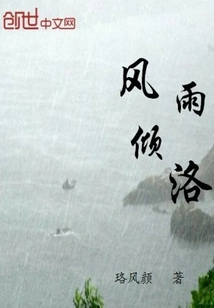 创世中文网
风雨
倾洛
珞风颜 著